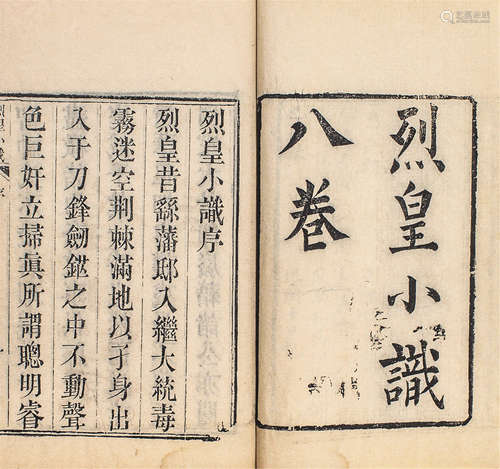 烈皇小識
八卷
烈皇小識序
烈皇昔繇藩邸入繼大統毒
霧迷空荆棘滿地以孑身出
入于刀鋒劒鋩之中不動聲
色巨奸立掃眞所謂聰明睿
烈皇小識